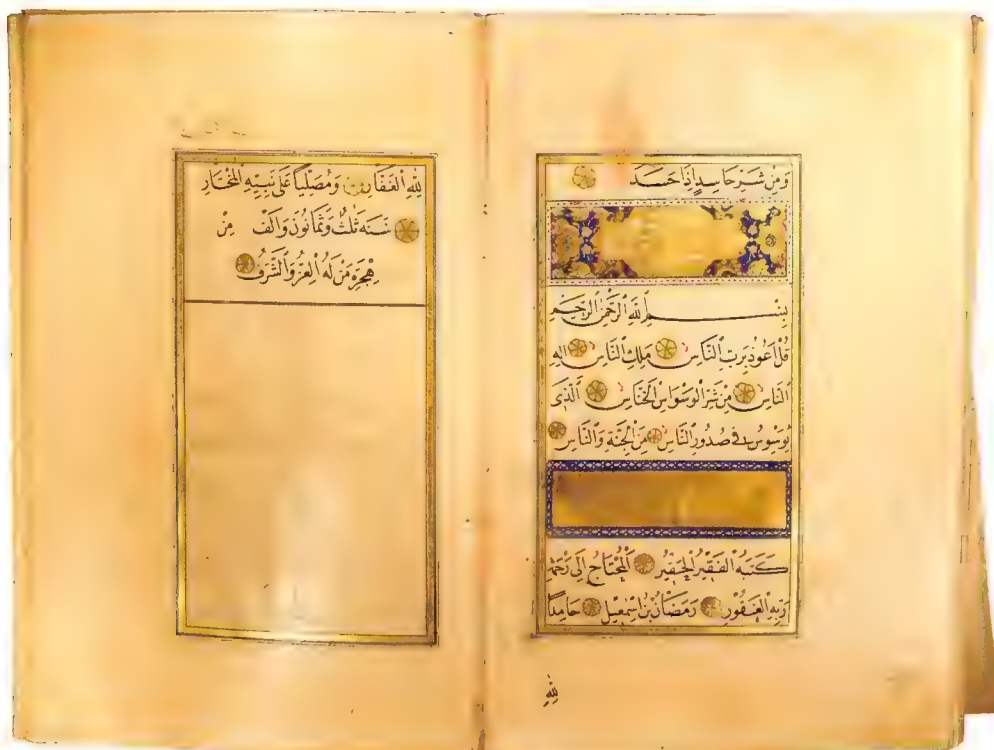 وَمِنْ شَرِّ حَاسِدٍ إِذَا حَسَدَ
بِسْمِ اللَّهِ الرَّحْمٰنِ الرَّحِيمِ
قُلْ أَعُوذُ بِرَبِّ النَّاسِ مَلِكِ النَّاسِ إِلٰهِ
النَّاسِ مِنْ شَرِّ الْوَسْوَاسِ الْخَنَّاسِ الَّذِي
يُوَسْوِسُ فِي صُدُورِ النَّاسِ مِنَ الْجِنَّةِ وَالنَّاسِ
كَتَبَهُ الْفَقِيرُ الْحَقِيرُ الْمُحْتَاجُ إِلَى رَحْمَةِ
رَبِّهِ الْغَفُورِ رَمَضَانُ بْنُ إِسْمٰعِيلَ حَامِدًا
لِلَّهِ
لِلَّهِ الْغَفَّارِ وَمُصَلِّيًا عَلَى نَبِيِّهِ الْمُخْتَارِ
سَنَةَ ثَلٰثٍ وَثَمَانُونَ وَأَلْفٍ مِنْ
هِجْرَةِ مَنْ لَهُ الْعِزُّ وَالشَّرَفُ